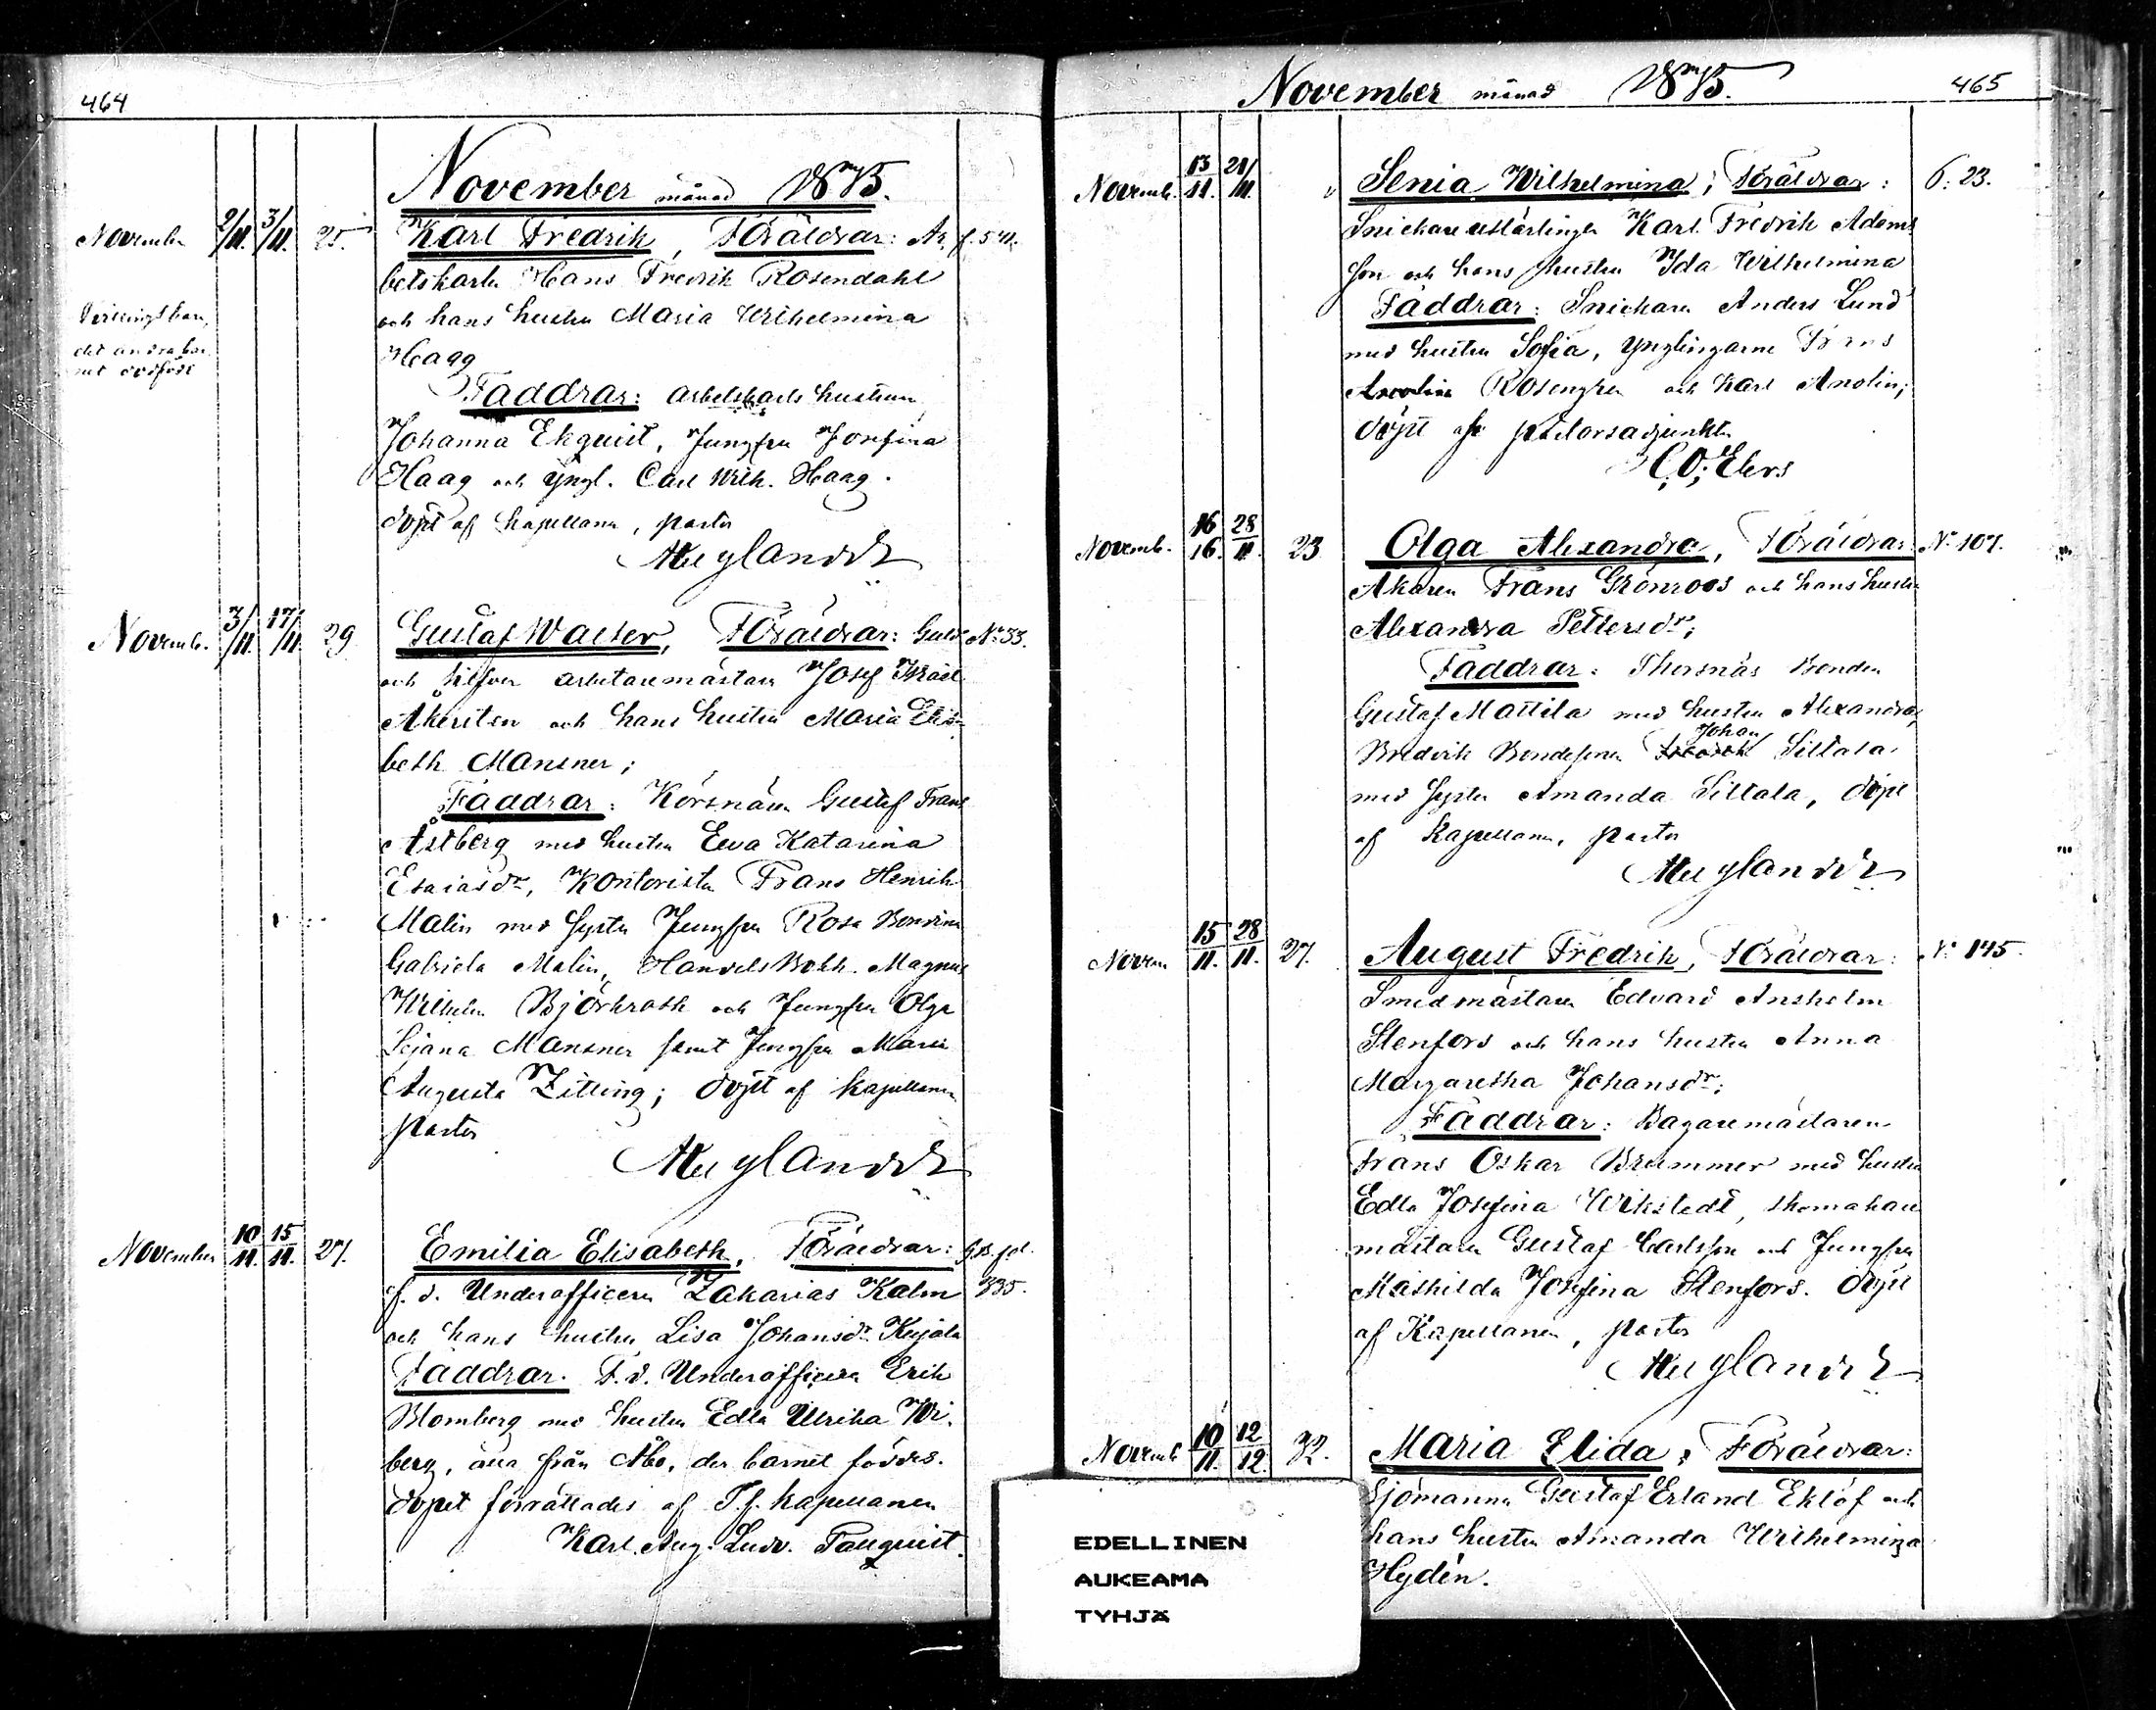 464
November månad 1875.
November 2/11. 3/11. 25. Karl Fredrik, Föräldrar: Ar- f. 541.
betskarlen Hans Fredrik Rosendahl
och hans hustru Maria Wilhelmina
Hagg
Tvillingsbarn,
det andra bar
net dödfödt
Faddrar: arbetskarls hustrun
Johanna Ekquist, Jungfru Josefina
Haag och yngl. Carl Wilh. Haag.
döpt af kapellanen, pastor
Novemb. 3/11. 17/11. 29 Gustaf Walter, Föräldrar: Guld No 33.
och silfver arbetaremästaren Josef Israel
Åkersten och hans hustru Maria Elisa-
beth Mansner;
Faddrar: Körsnären Gustaf Frans
Åstberg med hustru Eva Katarina
Esaiasdr, Kontoristen Frans Henrik
Malin med syster Jungfru Rosa
Gabriela Malin, Handels Bokh. Magnus
Wilhelm Björkroth och Jungfru Olga
Sejana Mansner samt Jungfru Maria
Augusta Zitting; döpt af kapellanen
pastor
November 10/11. 15/11. 27. Emilia Elisabeth, Föräldrar:
f. d. Underofficeren Zakarias Kalm 335.
och hans hustru Lisa Johansdr Kujala
Faddrar. F. d. Underofficeren Erik
Blomberg med hustru Edla Ulrika Wi-
berg, alla från Åbo, der barnet föddes.
Dopet förrättades af T.f. kapellanen
Karl. Aug. Ludv.
November månad 1875. 465
Novemb. 13/11. 21/11. Senia Wilhelmina; Föräldrar: 6: 23.
Snickare Karl Fredrik Adams
son och hans hustru Ida Wilhelmina
Faddrar: Snickaren Anders Lund
med hustru Sofia, ynglingarne Frans
Rosengren och Karl Anolin;
döpt af pastorsadjunkten
Elers
Novemb. 16/16. 28/11. 23 Olga Alexandra, Föräldrar: No 107.
Åkaren Frans Grönroos och hans hustru
Alexandra Pettersdr;
Faddrar: Thorsnäs Bonden
Gustaf Mattila med hustru Alexandra,
Johan
Bondesonen Siltala
med syster Amanda Siltala, döpt
af Kapellanen, pastor
Novem 15/11. 28/11. 27. August Fredrik, Föräldrar: No 145.
Smedmästaren Edvard Anshelm
Stenfors och hans hustru Anna
Margaretha Johansdr;
Faddrar: Bagaremästaren
Frans Oskar Brummer med hustru
Edla Josefina Wikstedt, skomakare
mästaren Gustaf Carlsson och Jungfru
Mathilda Josefina Stenfors. döpt
af Kapellanen, pastor
Novemb 10/11. 12/12. 32. Maria Elida, Föräldrar:
Sjömannen Gustaf Erland Eklöf och
hans hustru Amanda Wilhelmina
Hydén.
EDELLINEN
AUKEAMA
TYHJÄ